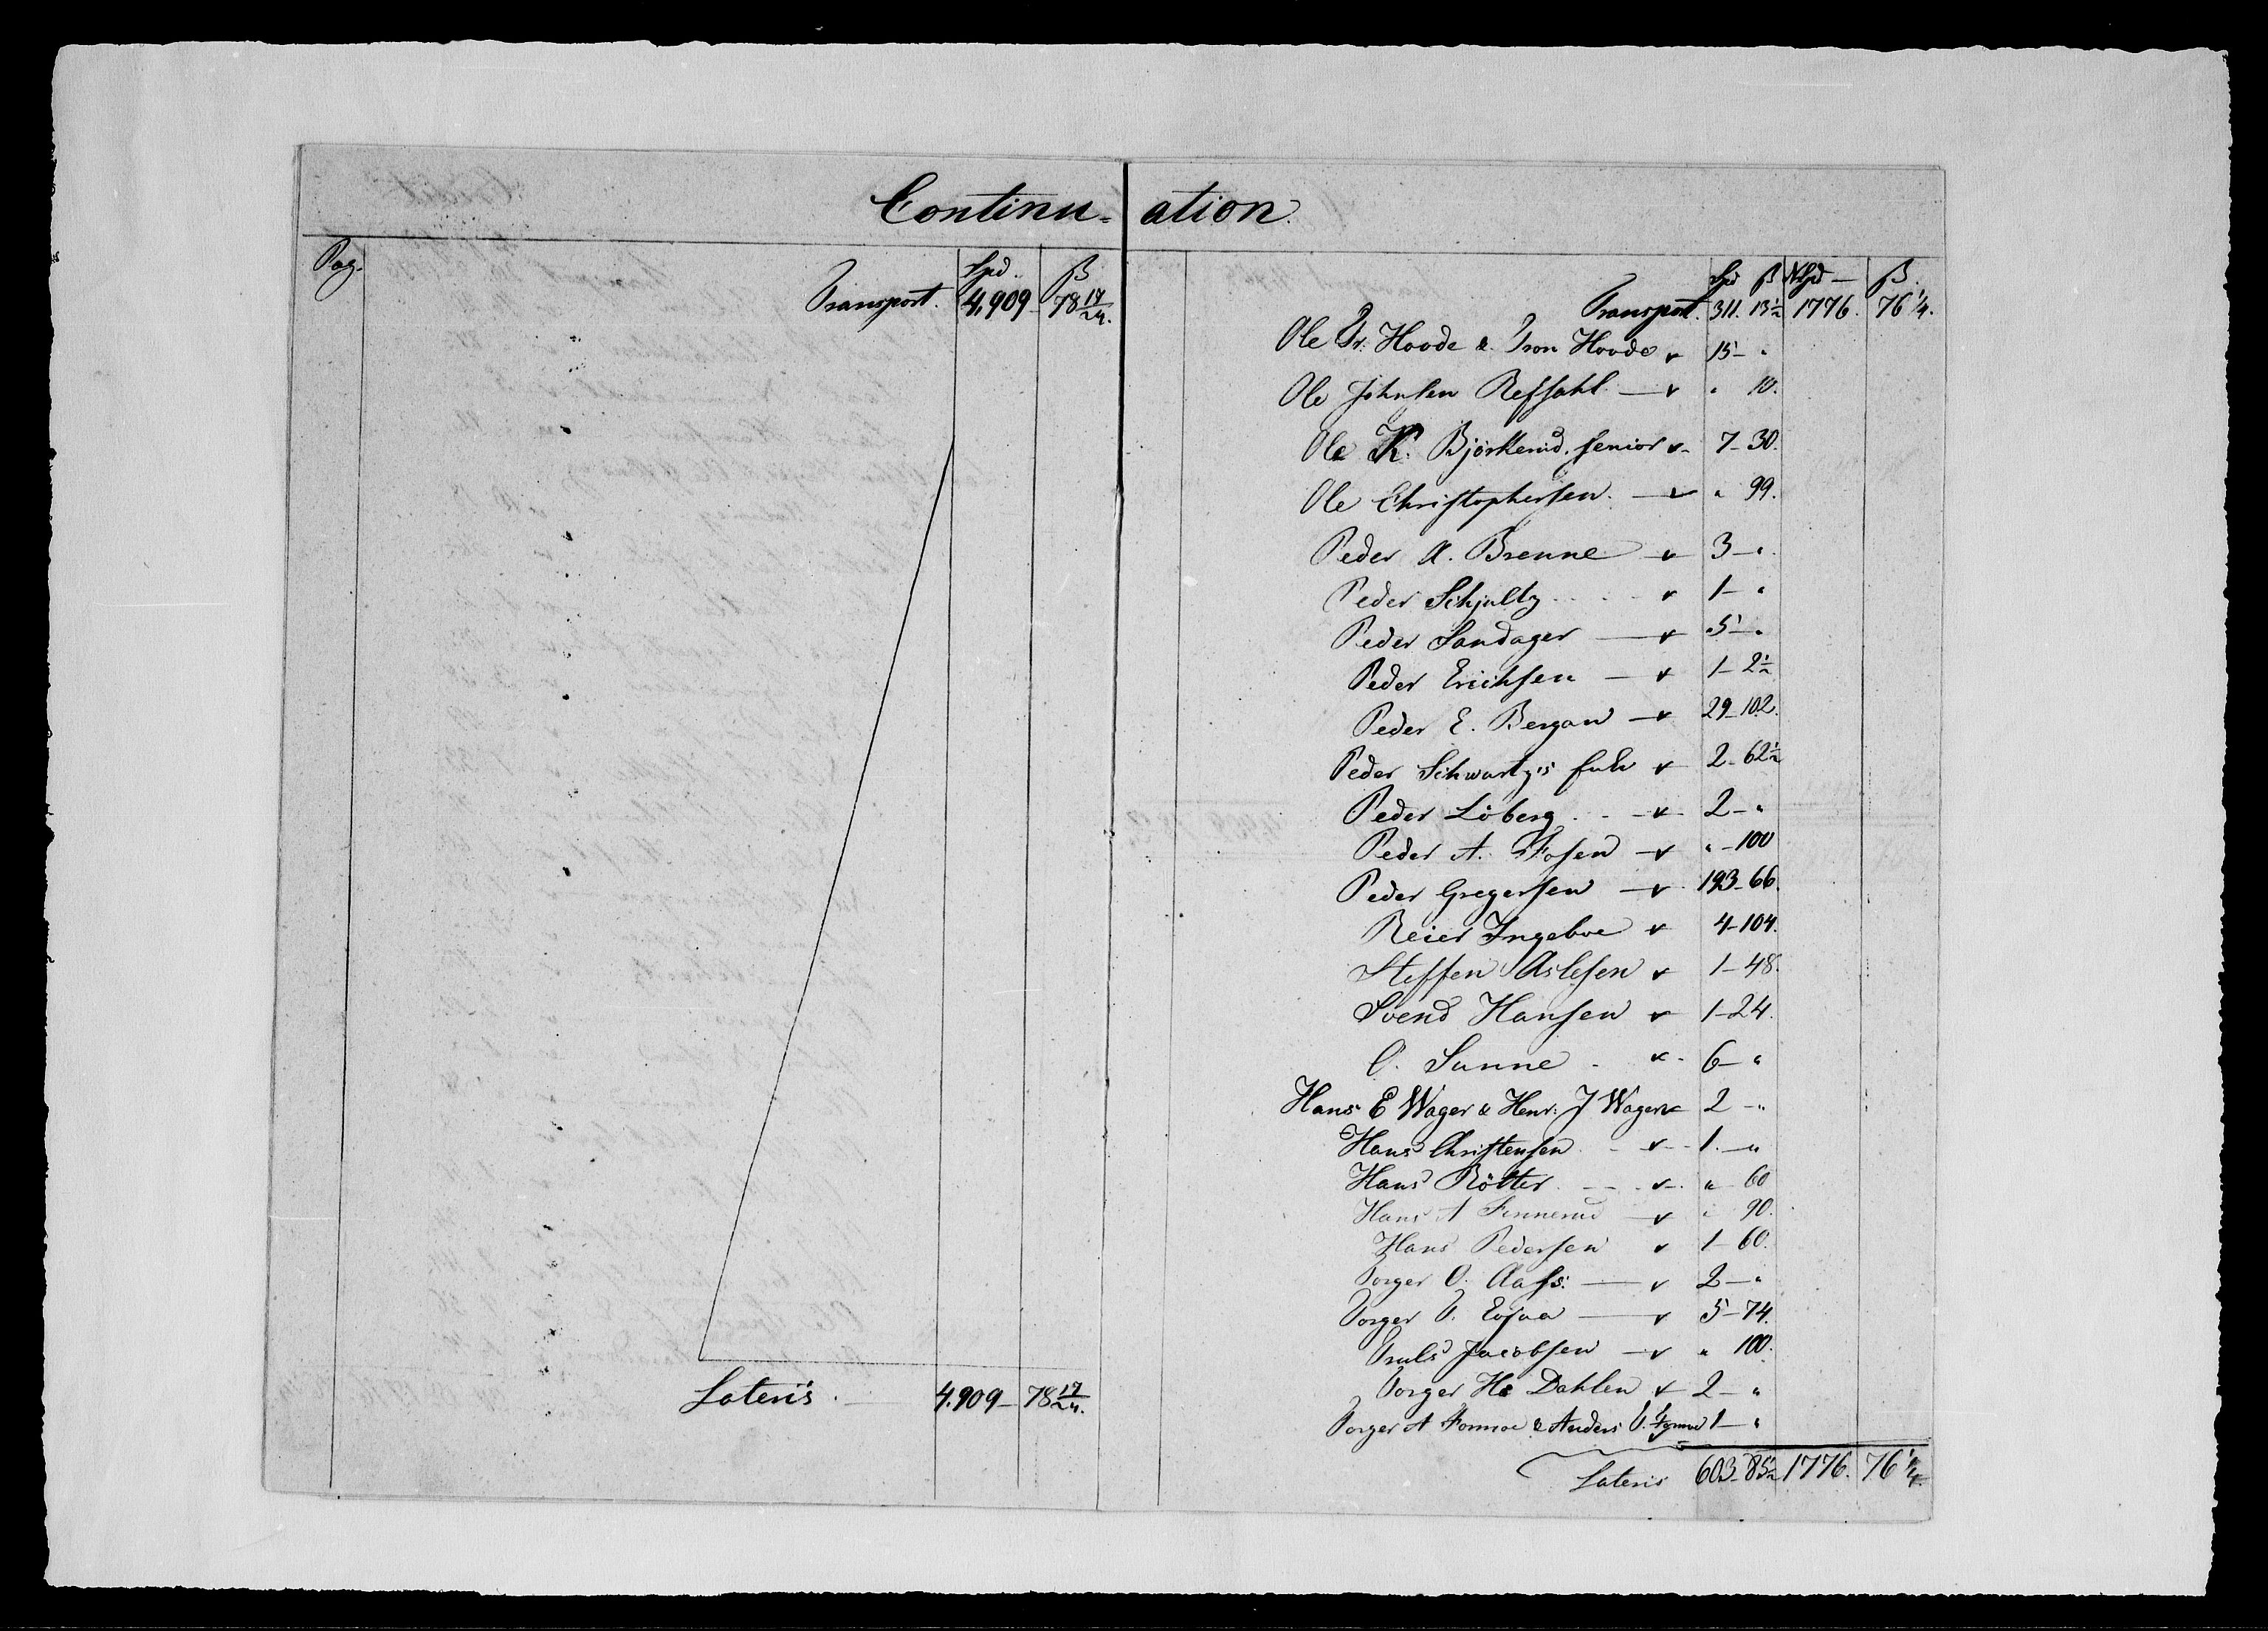 Continu- ation.
Pag. Spd. ß
Transport. 4,909 - 78 17/24.
Lateris. 4.909 - 78 17/24.
Spd ß Spd - ß
Transport. 311. 13 1/2 1776. 76 1/4.
Ole Tr. Hovde & Iron Hovde v 15 - "
Ole Johnsen Refsahl - v " 10.
Ole K. Björkerud, senior v - 7 - 30.
Ole Christophersen. - v " 99.
Peder A. Brenne - v 3 - "
Peder Schjultz . . . v 1 - "
Peder Sandager - v 5 - "
Peder Erichsen - v 1 - 2 1/2
Peder E. Bergan - v 29 - 102.
Peder Schwartz's v 2 - 62 1/2
Peder Löberg . - v - 2 - "
Peder A. Fosen - v " - 100
Peder Gregersen - v 193 - 66.
Reier Ingeboe v 4 - 104.
Steffen Aslesen v 1 - 48.
Svend Hansen v 1 - 24.
O. Sunne . v - 6 - "
Hans E Wager & Henr: J Wager v 2 - "
Hans Christensen - v - 1. - "
Hans Rötter. - - v - " 60
Hans A Finnerud - v " 90.
Hans Pedersen v 1 - 60.
Torger O. Aass. - v 2 - "
Torger T. - v 5 - 74.
Truls Jacobsen - v " 100.
Torger H. Dahlen v 2 - "
Torger A Formoe & Anders Formoe 1 - "
Lateris 603 - 85 1/2 1776. 76 1/4.